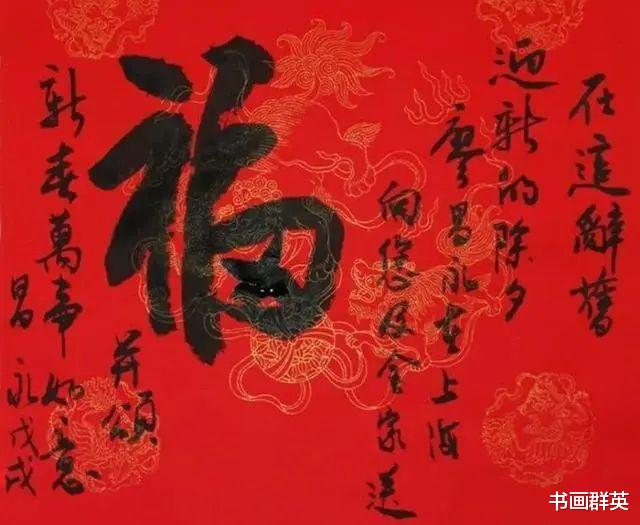 在這辭舊
迎新的除夕
廖昌永在上海
向您及全家送
福
並頌
新春萬事如意
昌永戊戌
书画群英